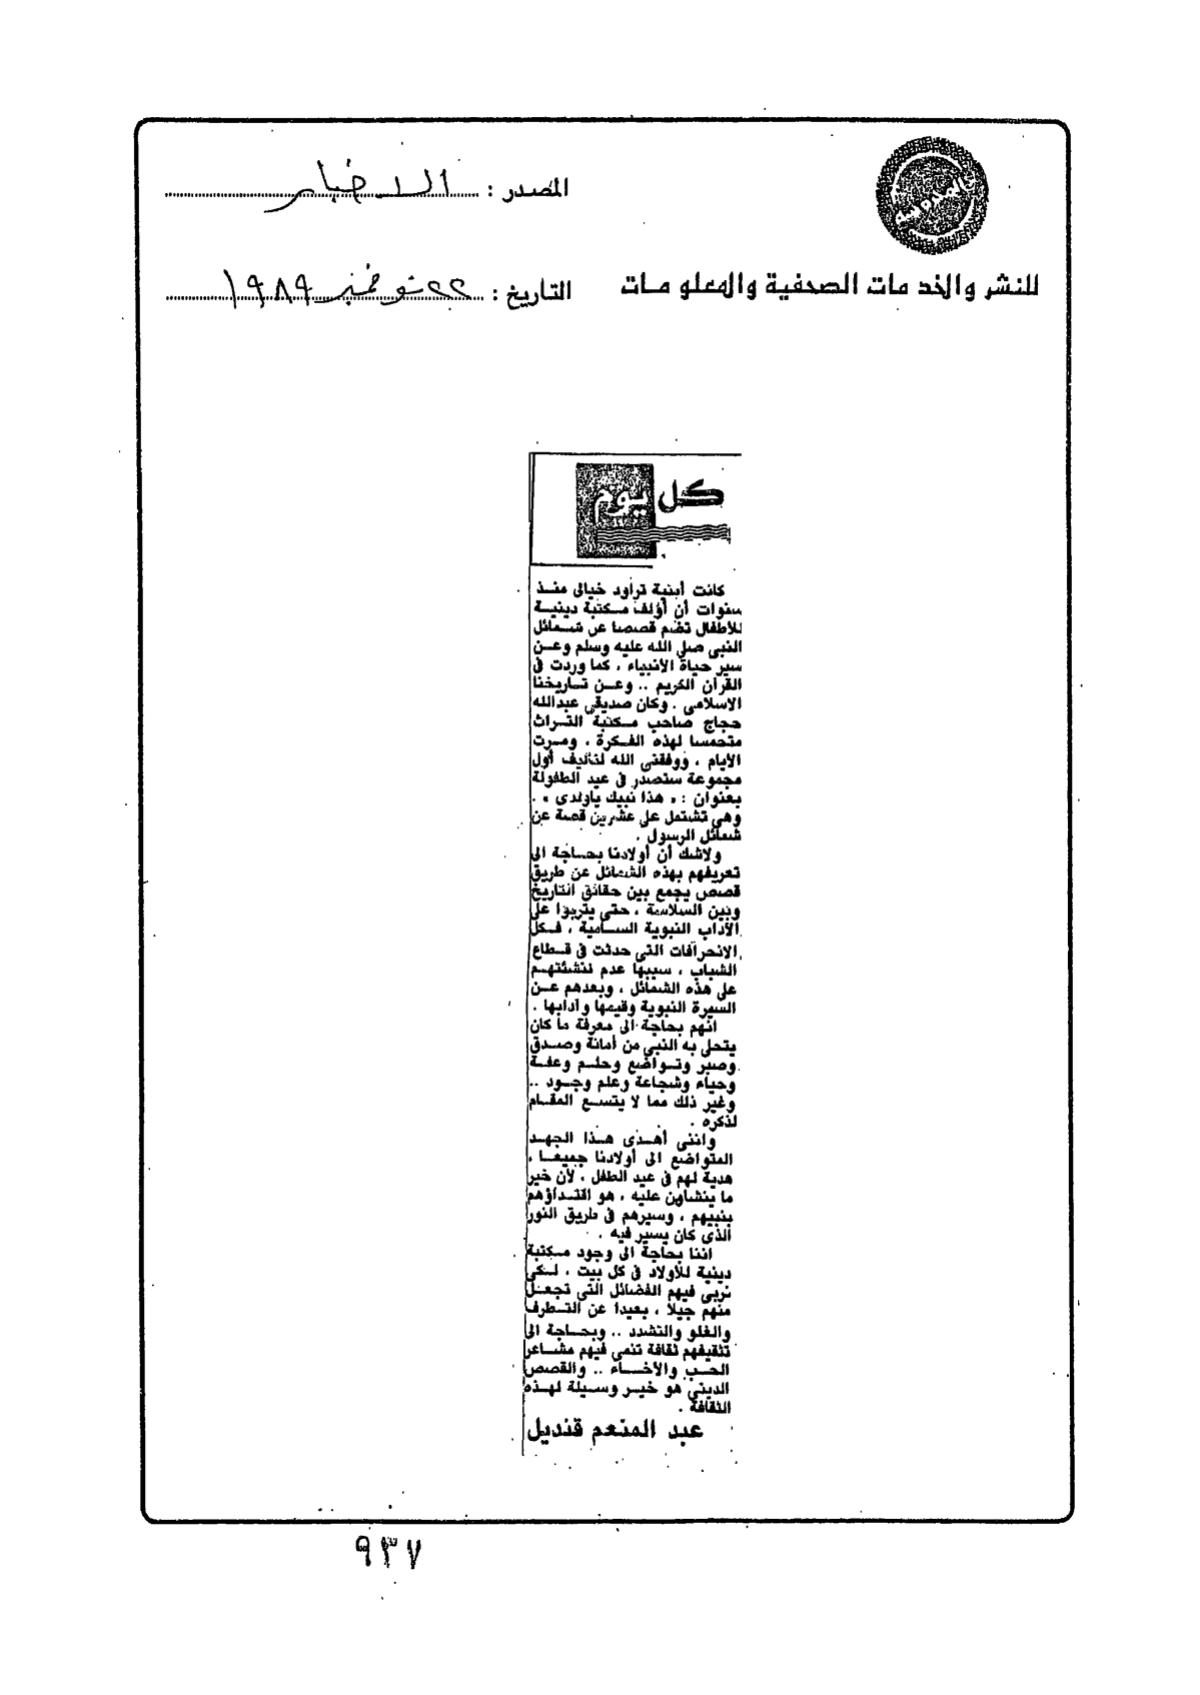 المصدر : الاخبار
للنشر والخدمات الصحفية والمعلومات
التاريخ : ٢٢ نوفمبر ١٩٨٩
كل يوم
كانت أبنية تراود خيالى منذ
سنوات أن أؤلف مكتبة دينية
للأطفال تضم قصصا عن شمائل
النبى صلى الله عليه وسلم وعن
سير حياة الأنبياء ، كما وردت فى
القرآن الكريم .. وعن تاريخنا
الاسلامى . وكان صديقى عبدالله
حجاج صاحب مكتبة التراث
متحمسا لهذه الفكرة ، ومرت
الأيام ، ووفقنى الله لتأليف أول
مجموعة ستصدر فى عيد الطفولة
بعنوان : « هذا نبيك ياولدى » .
وهى تشتمل على عشرين قصة عن
شمائل الرسول .
ولاشك أن أولادنا بحاجة الى
تعريفهم بهذه الشمائل عن طريق
قصص يجمع بين حقائق التاريخ
وبين السلاسة ، حتى يتربوا على
الآداب النبوية السامية ، فكل
الانحرافات التى حدثت فى قطاع
الشباب ، سببها عدم تنشئتهم
على هذه الشمائل ، وبعدهم عن
السيرة النبوية وقيمها وآدابها .
انهم بحاجة الى معرفة ما كان
يتحلى به النبى من أمانة وصدق
وصبر وتواضع وحلم وعفة
وحياء وشجاعة وعلم وجود ..
وغير ذلك مما لا يتسع المقام
لذكره .
واننى أهدى هذا الجهد
المتواضع الى أولادنا جميعا ،
هدية لهم فى عيد الطفل ، لأن خير
ما ينشأون عليه ، هو اقتداؤهم
بنبيهم ، وسيرهم فى طريق النور
الذى كان يسير فيه .
اننا بحاجة الى وجود مكتبة
دينية للأولاد فى كل بيت ، لكى
نربى فيهم الفضائل التى تجعل
منهم جيلا ، بعيدا عن التطرف
والغلو والتشدد .. وبحاجة الى
تثقيفهم ثقافة تنمى فيهم مشاعر
الحب والأخاء .. والقصص
الدينى هو خير وسيلة لهذه
الثقافة .
عبد المنعم قنديل
٩٣٧